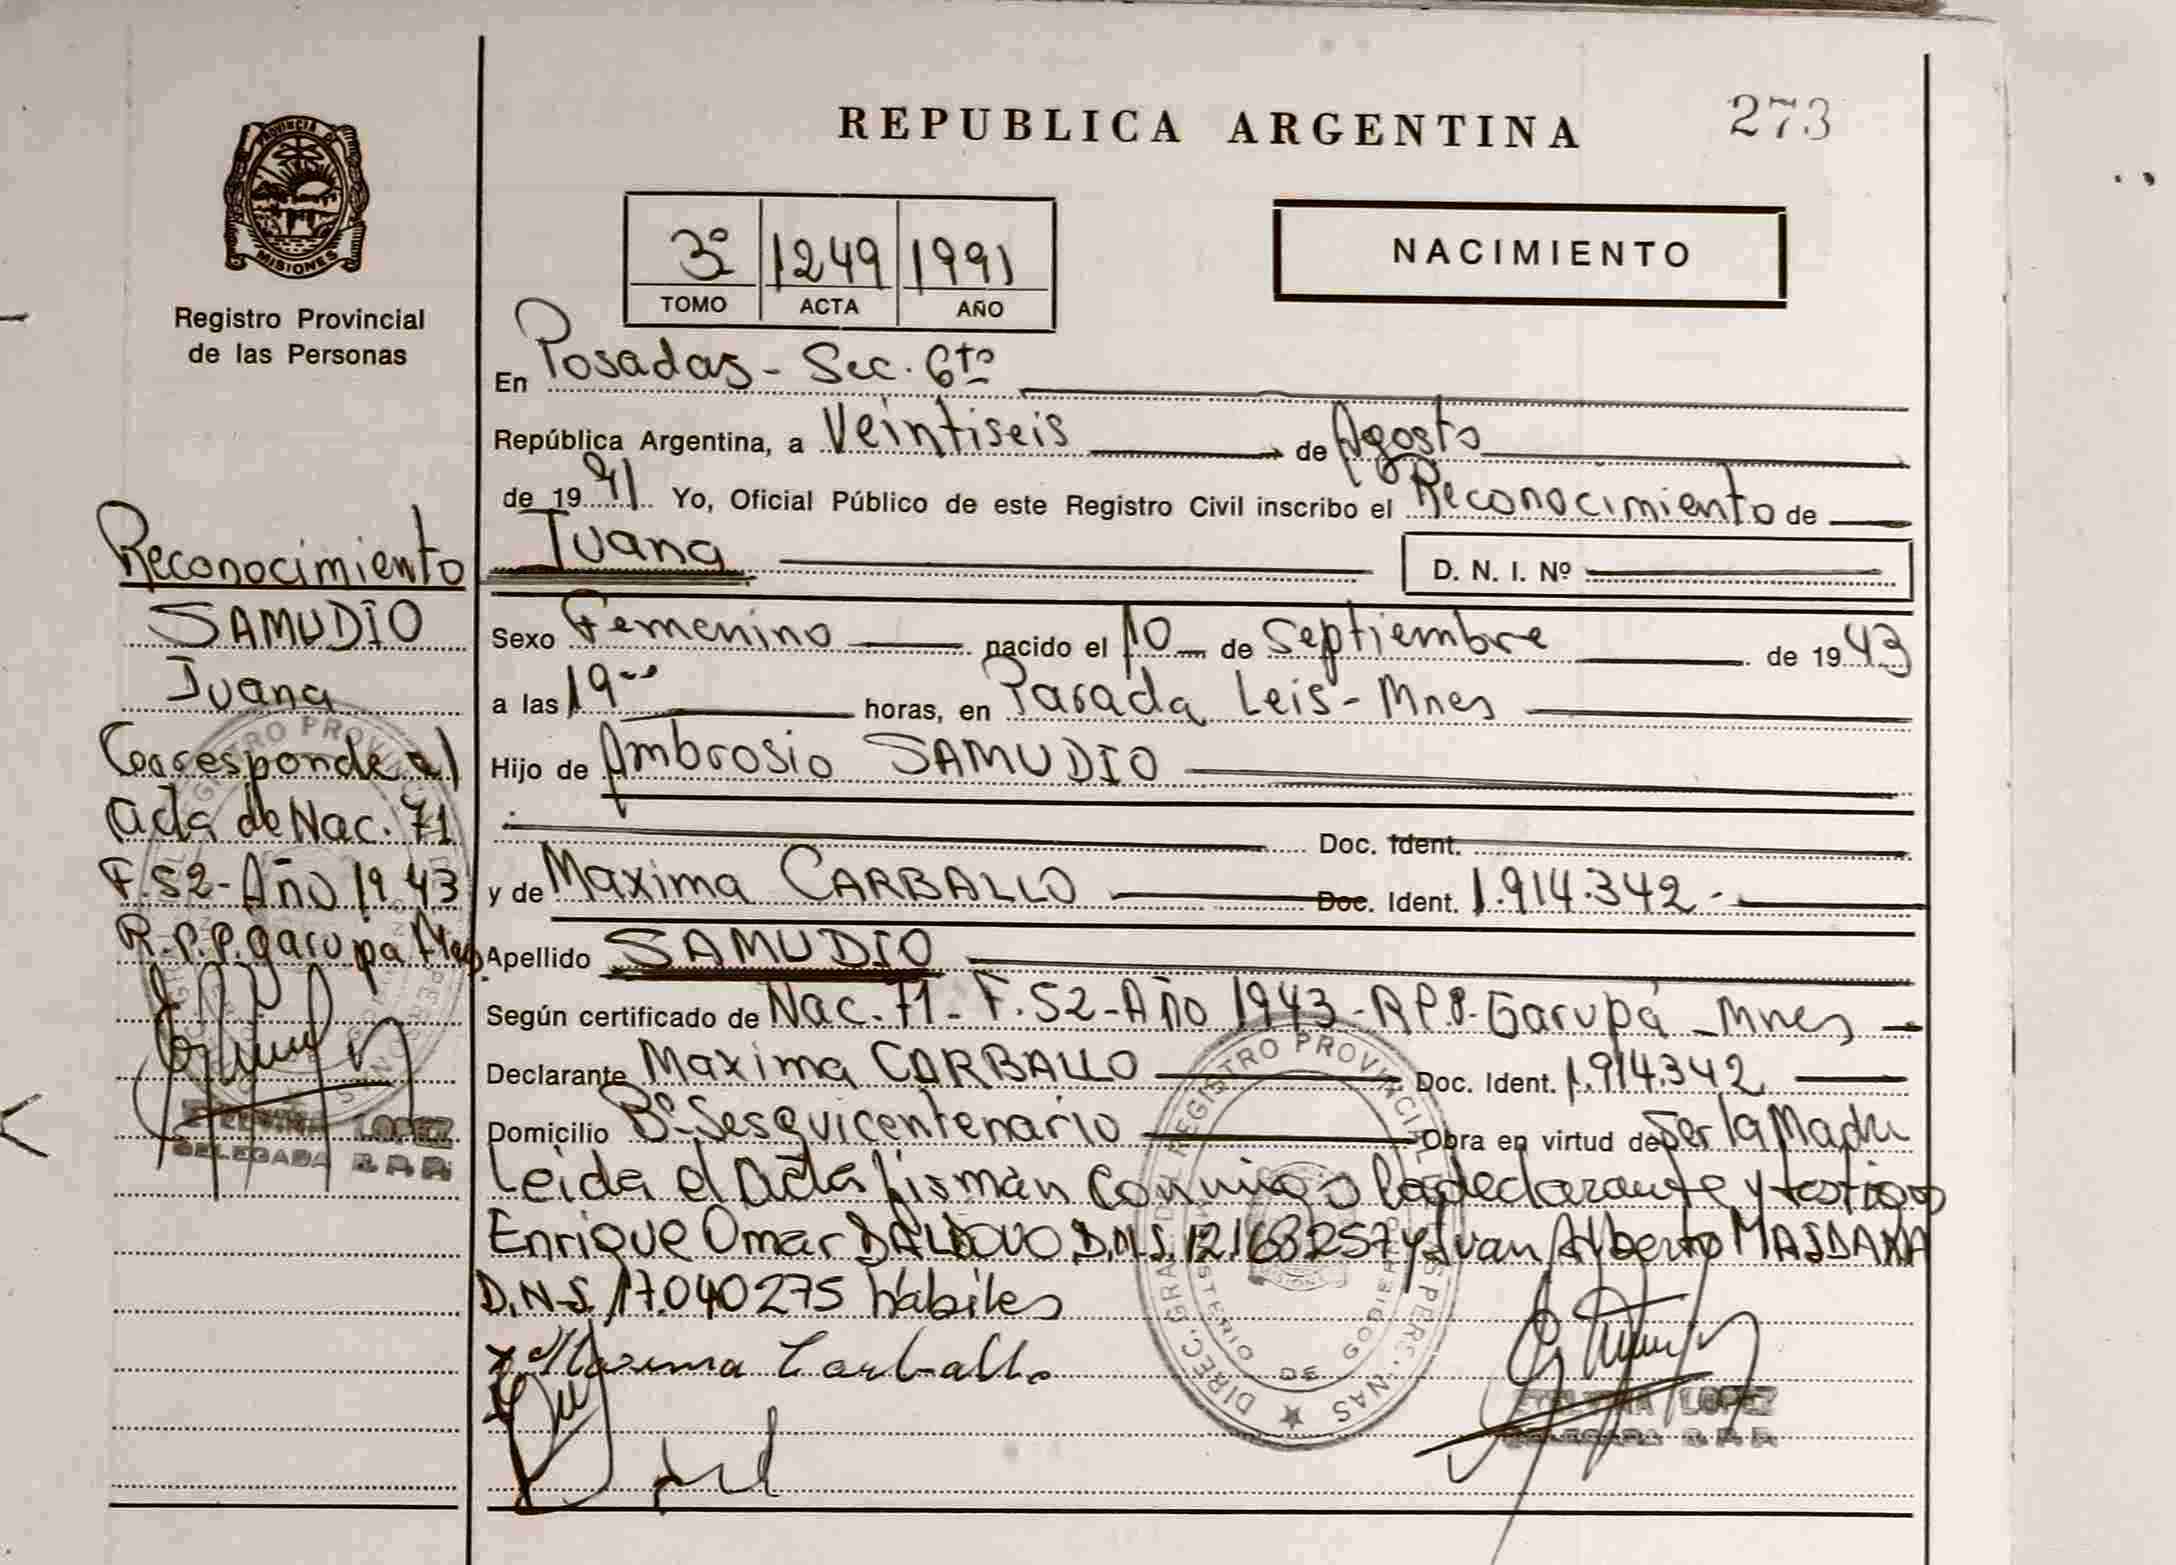 REPUBLICA ARGENTINA
273
PROVINCIA DE
MISIONES
Registro Provincial
de las Personas
3º 1249 1991
TOMO ACTA AÑO
NACIMIENTO
En Posadas - Sec. 6ta
República Argentina, a Veintiseis de Agosto
de 1991 Yo, Oficial Público de este Registro Civil inscribo el Reconocimiento de
Juana D. N. I. Nº
Sexo Femenino nacido el 10 de Septiembre de 1943
a las 19 horas, en Parada Leis - Mnes
Hijo de Ambrosio SAMUDIO
Doc. Ident.
y de Maxima CARBALLO Doc. Ident. 1.914.342.-
Apellido SAMUDIO
Según certificado de Nac. 71 - F. 52 - Año 1943 - R.P.P. Garupá - Mnes
Declarante Maxima CARBALLO Doc. Ident. 1.914.342
Domicilio Bº Sesquicentenario Obra en virtud de Ser la Madre
Leida el Acta firman conmigo la declarante y testigos
Enrique Omar BALDOVO D.N.I. 12.168257 y Juan Alberto MAIDANA
D.N.I. 17.040275 habiles
Maxima Carballo
ETELVINA LOPEZ
DELEGADA R.P.P.
Reconocimiento
SAMUDIO
Juana
Corresponde al
acta de Nac. 71
F. 52 - Año 1943
R.P.P. Garupa Mnes
ETELVINA LOPEZ
DELEGADA R.P.P.